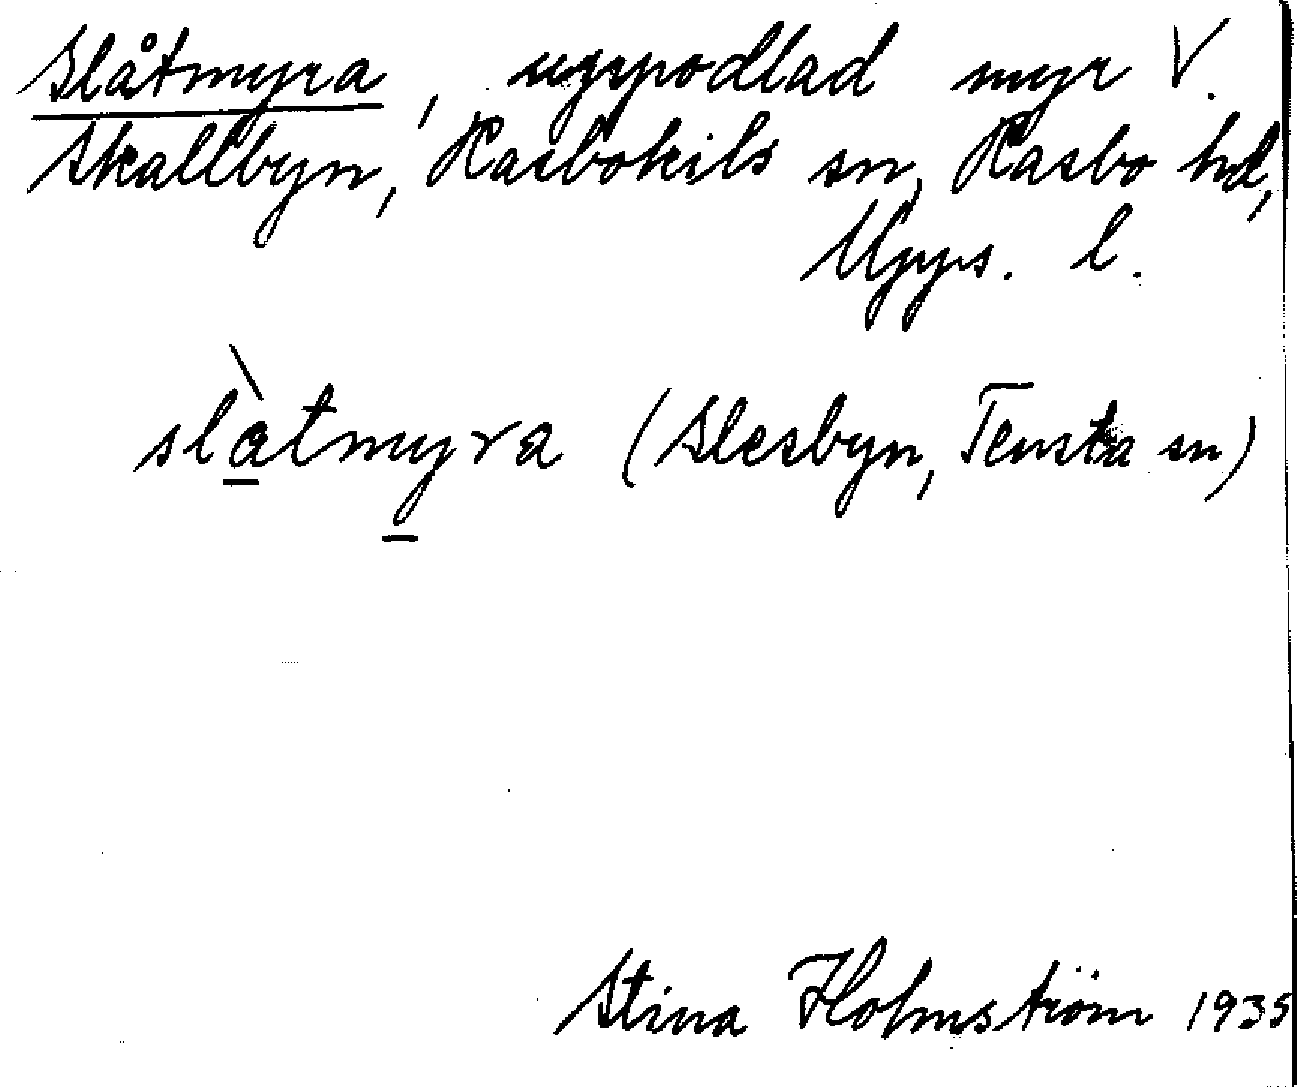 Slåtmyra, uppodlad myr V.
Skallbyn, Rasbokils sn, Rasbo hd,
Upps. l.
slàtmyra (Slesbyn, Tensta sn)
Stina Holmström 1935